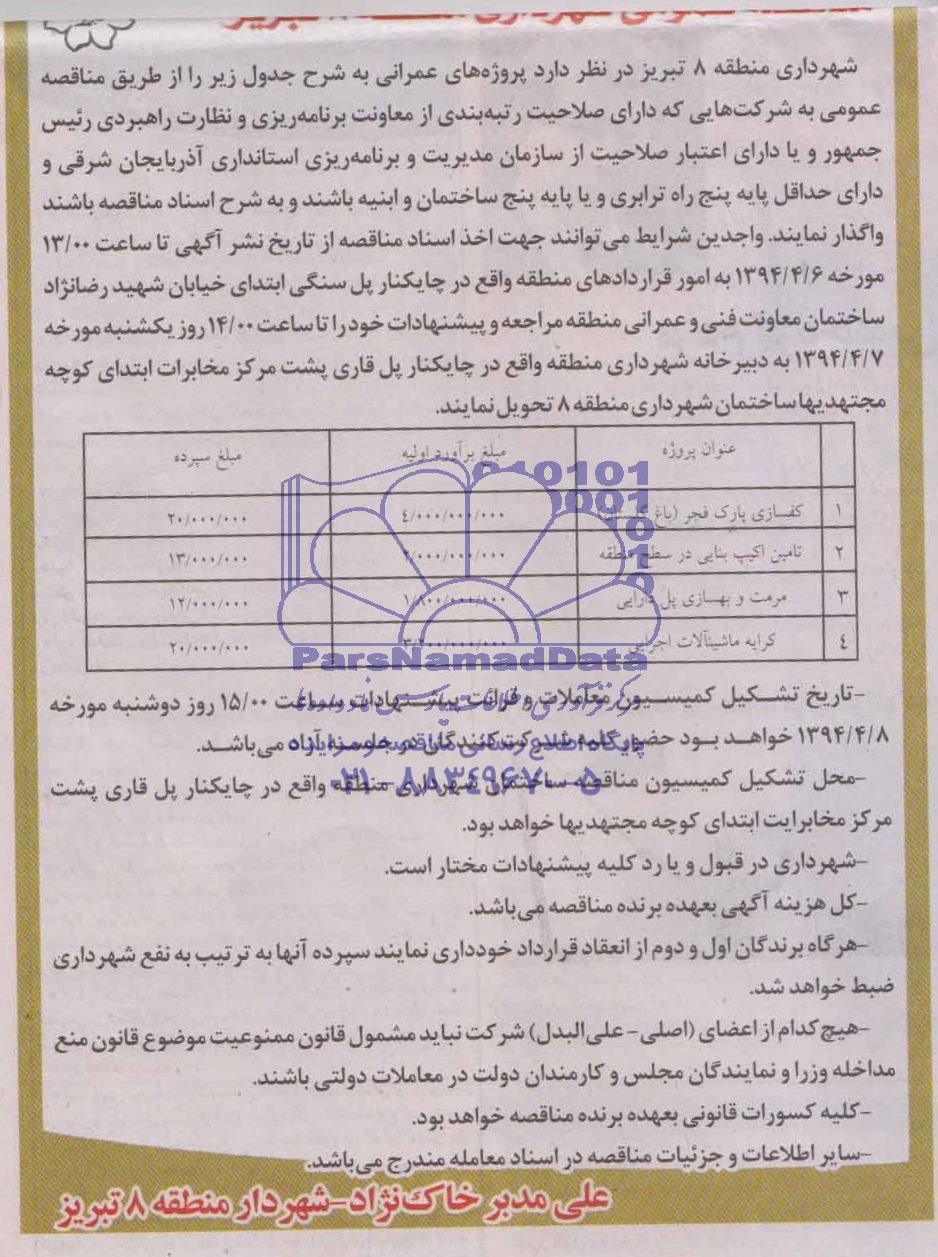 مناقصه عمومی شهرداری منطقه ۸ تبریز
شهرداری منطقه ۸ تبریز در نظر دارد پروژه‌های عمرانی به شرح جدول زیر را از طریق مناقصه
عمومی به شرکت‌هایی که دارای صلاحیت رتبه‌بندی از معاونت برنامه‌ریزی و نظارت راهبردی رئیس
جمهور و یا دارای اعتبار صلاحیت از سازمان مدیریت و برنامه‌ریزی استانداری آذربایجان شرقی و
دارای حداقل پایه پنج راه ترابری و یا پایه پنج ساختمان و ابنیه باشند و به شرح اسناد مناقصه باشند
واگذار نمایند. واجدین شرایط می‌توانند جهت اخذ اسناد مناقصه از تاریخ نشر آگهی تا ساعت ۱۳/۰۰
مورخه ۱۳۹۴/۴/۶ به امور قراردادهای منطقه واقع در چایکنار پل سنگی ابتدای خیابان شهید رضانژاد
ساختمان معاونت فنی و عمرانی منطقه مراجعه و پیشنهادات خود را تا ساعت ۱۴/۰۰ روز یکشنبه مورخه
۱۳۹۴/۴/۷ به دبیرخانه شهرداری منطقه واقع در چایکنار پل قاری پشت مرکز مخابرات ابتدای کوچه
مجتهدیها ساختمان شهرداری منطقه ۸ تحویل نمایند.
عنوان پروژه مبلغ برآورد اولیه مبلغ سپرده
۱ کفسازی پارک فجر (باغ گلستان) ٤/۰۰۰/۰۰۰/۰۰۰ ۲۰/۰۰۰/۰۰۰
۲ تامین اکیپ بنایی در سطح منطقه ۲/۰۰۰/۰۰۰/۰۰۰ ۱۳/۰۰۰/۰۰۰
۳ مرمت و بهسازی پل دارایی ۱/۸۰۰/۰۰۰/۰۰۰ ۱۲/۰۰۰/۰۰۰
٤ کرایه ماشینآلات اجرایی ۳/۲۰۰/۰۰۰/۰۰۰ ۲۰/۰۰۰/۰۰۰
ParsNamadData
-تاریخ تشکیل کمیسیون معاملات و قرائت پیشنهادات ساعت ۱۵/۰۰ روز دوشنبه مورخه
۱۳۹۴/۴/۸ خواهد بود حضور کلیه شرکت کنندگان در جلسه آزاد می‌باشد.
پایگاه اطلاع رسانی مناقصه و مزایده
-محل تشکیل کمیسیون مناقصه ساختمان شهرداری منطقه واقع در چایکنار پل قاری پشت
۰۲۱-۸۸۳٤۹۶۷۰-۵
مرکز مخابرایت ابتدای کوچه مجتهدیها خواهد بود.
-شهرداری در قبول و یا رد کلیه پیشنهادات مختار است.
-کل هزینه آگهی بعهده برنده مناقصه می‌باشد.
-هر گاه برندگان اول و دوم از انعقاد قرارداد خودداری نمایند سپرده آنها به ترتیب به نفع شهرداری
ضبط خواهد شد.
-هیچ کدام از اعضای (اصلی - علی‌البدل) شرکت نباید مشمول قانون ممنوعیت موضوع قانون منع
مداخله وزرا و نمایندگان مجلس و کارمندان دولت در معاملات دولتی باشند.
-کلیه کسورات قانونی بعهده برنده مناقصه خواهد بود.
-سایر اطلاعات و جزئیات مناقصه در اسناد معامله مندرج می‌باشد.
علی مدبر خاک‌نژاد-شهردار منطقه ۸ تبریز